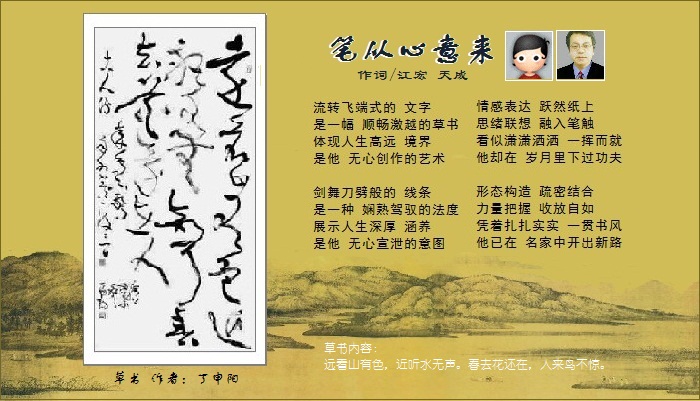 笔从心意来
作词/江宏 天成
流转飞端式的 文字
是一幅 顺畅激越的草书
体现人生高远 境界
是他 无心创作的艺术
剑舞刀劈般的 线条
是一种 娴熟驾驭的法度
展示人生深厚 涵养
是他 无心宣泄的意图
情感表达 跃然纸上
思绪联想 融入笔触
看似潇潇洒洒 一挥而就
他却在 岁月里下过功夫
形态构造 疏密结合
力量把握 收放自如
凭着扎扎实实 一贯书风
他已在 名家中开出新路
草书内容:
远看山有色，近听水无声。春去花还在，人来鸟不惊。
草书 作者：丁申阳